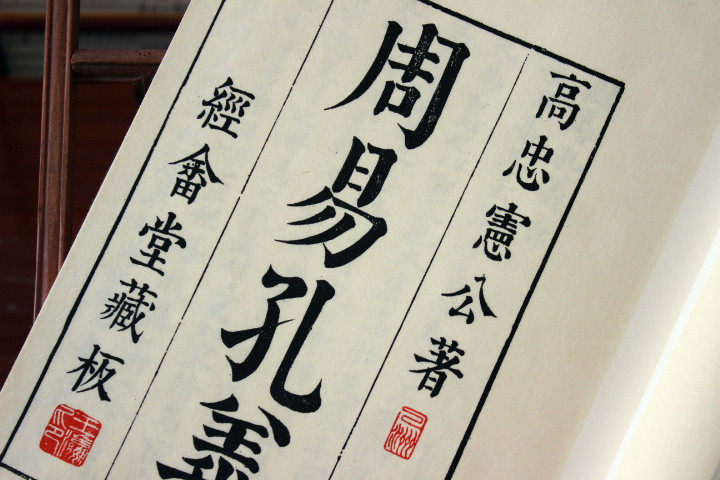 高忠憲公著
周易孔義
經畬堂藏板